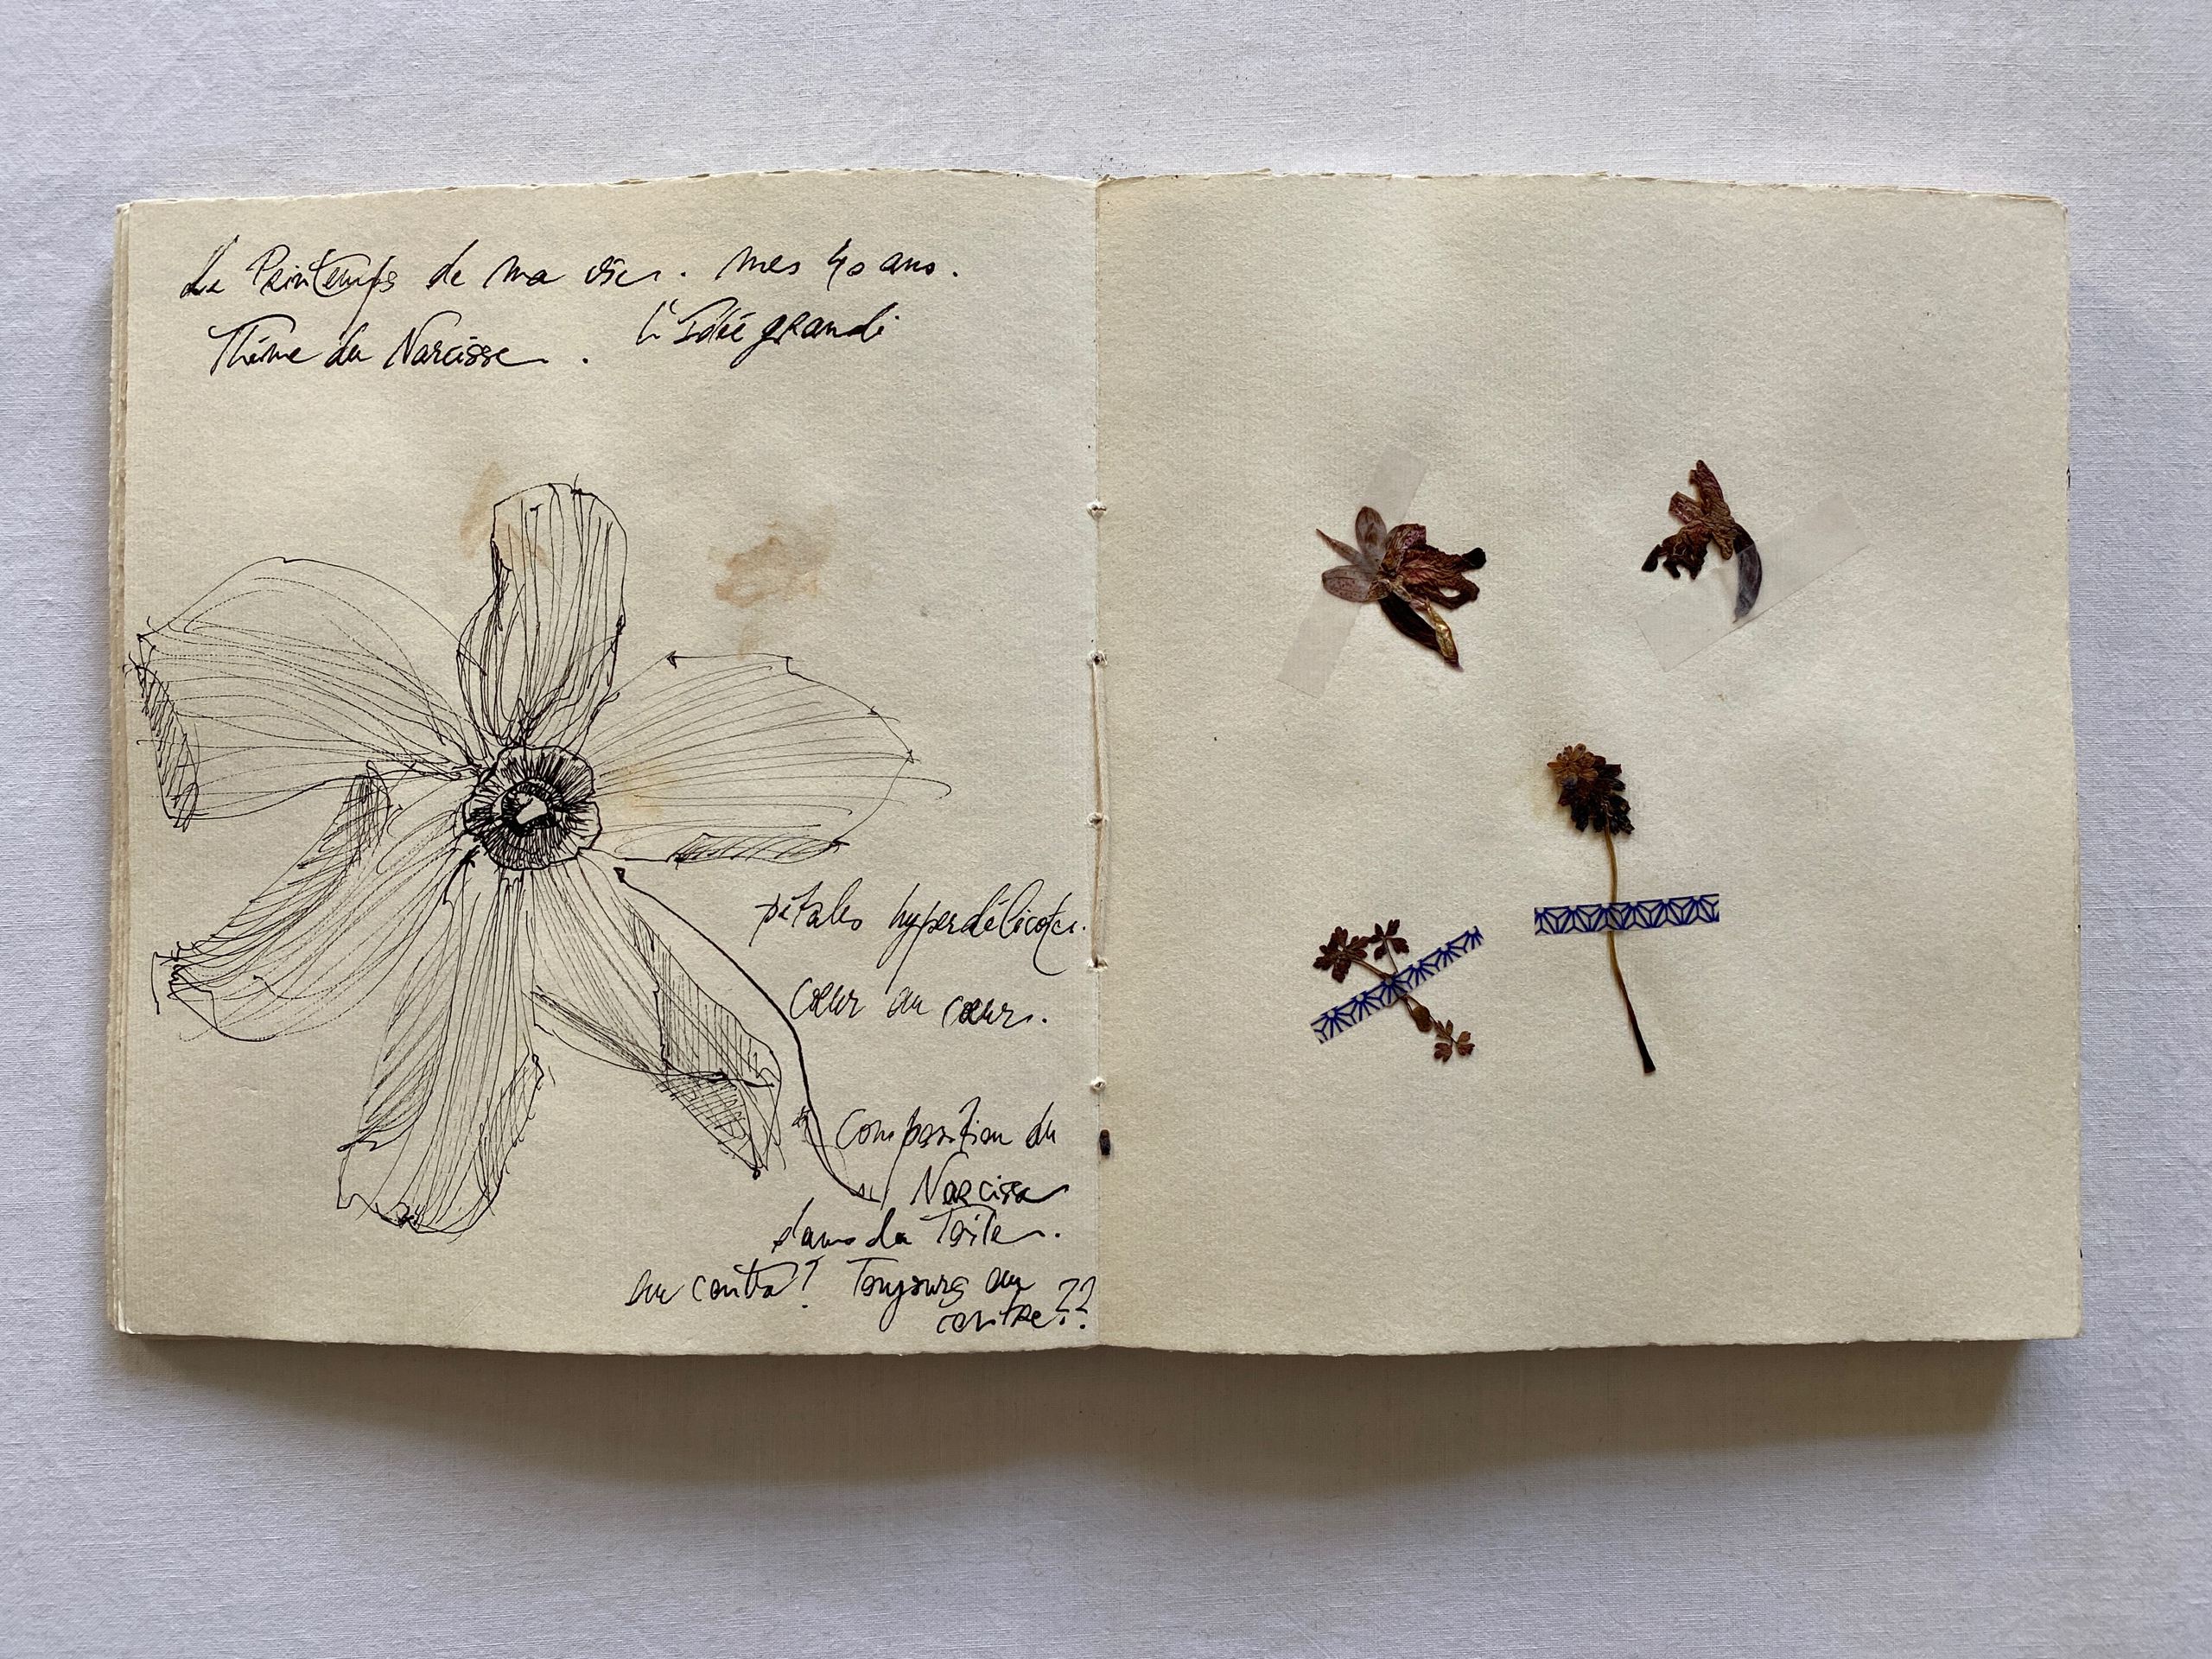 Le Printemps de ma vie. Mes 40 ans.
Thème du Narcisse. L'Idée grandi
pétales hyperdélicats.
cœur au cœur.
Composition du
Narcisse
dans la Toile.
au centre? Toujours au
centre??